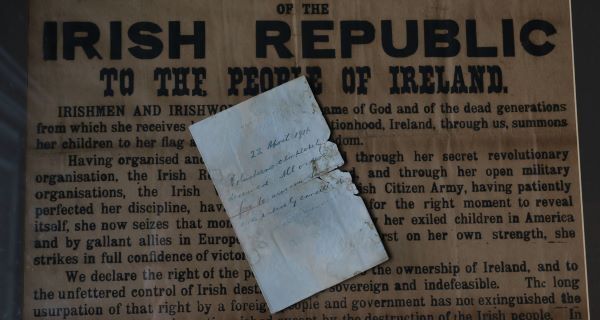 OF THE
IRISH REPUBLIC
TO THE PEOPLE OF IRELAND.
IRISHMEN AND IRISHWO ame of God and of the dead generations
from which she receives tionhood, Ireland, through us, summons
her children to her flag a dom.
Having organised and through her secret revolutionary
organisation, the Irish Re and through her open military
organisations, the Irish ish Citizen Army, having patiently
perfected her discipline, hav for the right moment to reveal
itself, she now seizes that mom her exiled children in America
and by gallant allies in Europe rst on her own strength, she
strikes in full confidence of victor
We declare the right of the p the ownership of Ireland, and to
the unfettered control of Irish dest sovereign and indefeasible. The long
usurpation of that right by a foreig people and government has not extinguished the
except by the destruction of the Irish people. In
22 April 1916
Volunteers completely
deceived. All